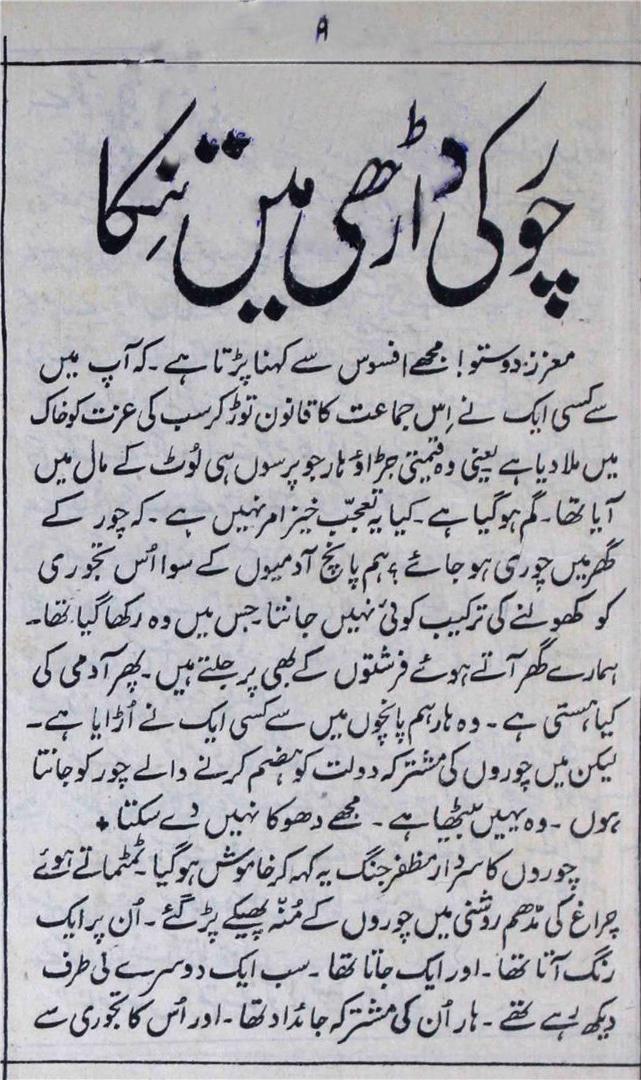 ۸
چور کی داڑھی میں تنکا
معزز دوستو! مجھے افسوس سے کہنا پڑتا ہے۔ کہ آپ میں
سے کسی ایک نے اِس جماعت کا قانون توڑ کر سب کی عزت کو خاک
میں ملا دیا ہے یعنی وہ قیمتی جڑاؤ ہار جو پرسوں ہی لُوٹ کے مال میں
آیا تھا۔ گم ہو گیا ہے۔ کیا یہ تعجّب خیز امر نہیں ہے۔ کہ چور کے
گھر میں چوری ہو جائے؟ ہم پانچ آدمیوں کے سوا اُس تجوری
کو کھولنے کی ترکیب کوئی نہیں جانتا۔ جس میں وہ رکھا گیا تھا۔
ہمارے گھر آتے ہوئے فرشتوں کے بھی پر جلتے ہیں۔ پھر آدمی کی
کیا ہستی ہے۔ وہ ہار ہم پانچوں میں سے کسی ایک نے اُڑایا ہے۔
لیکن میں چوروں کی مشترکہ دولت کو ہضم کرنے والے چور کو جانتا
ہوں۔ وہ یہیں بیٹھا ہے۔ مجھے دھوکا نہیں دے سکتا ٭
چوروں کا سردار مظفر جنگ یہ کہہ کر خاموش ہو گیا۔ ٹمٹماتے ہوئے
چراغ کی مدّھم روشنی میں چوروں کے مُنہ پھیکے پڑ گئے۔ اُن پر ایک
رنگ آتا تھا۔ اور ایک جاتا تھا۔ سب ایک دوسرے کی طرف
دیکھ رہے تھے۔ ہار اُن کی مشترکہ جائداد تھا۔ اور اُس کا تجوری سے